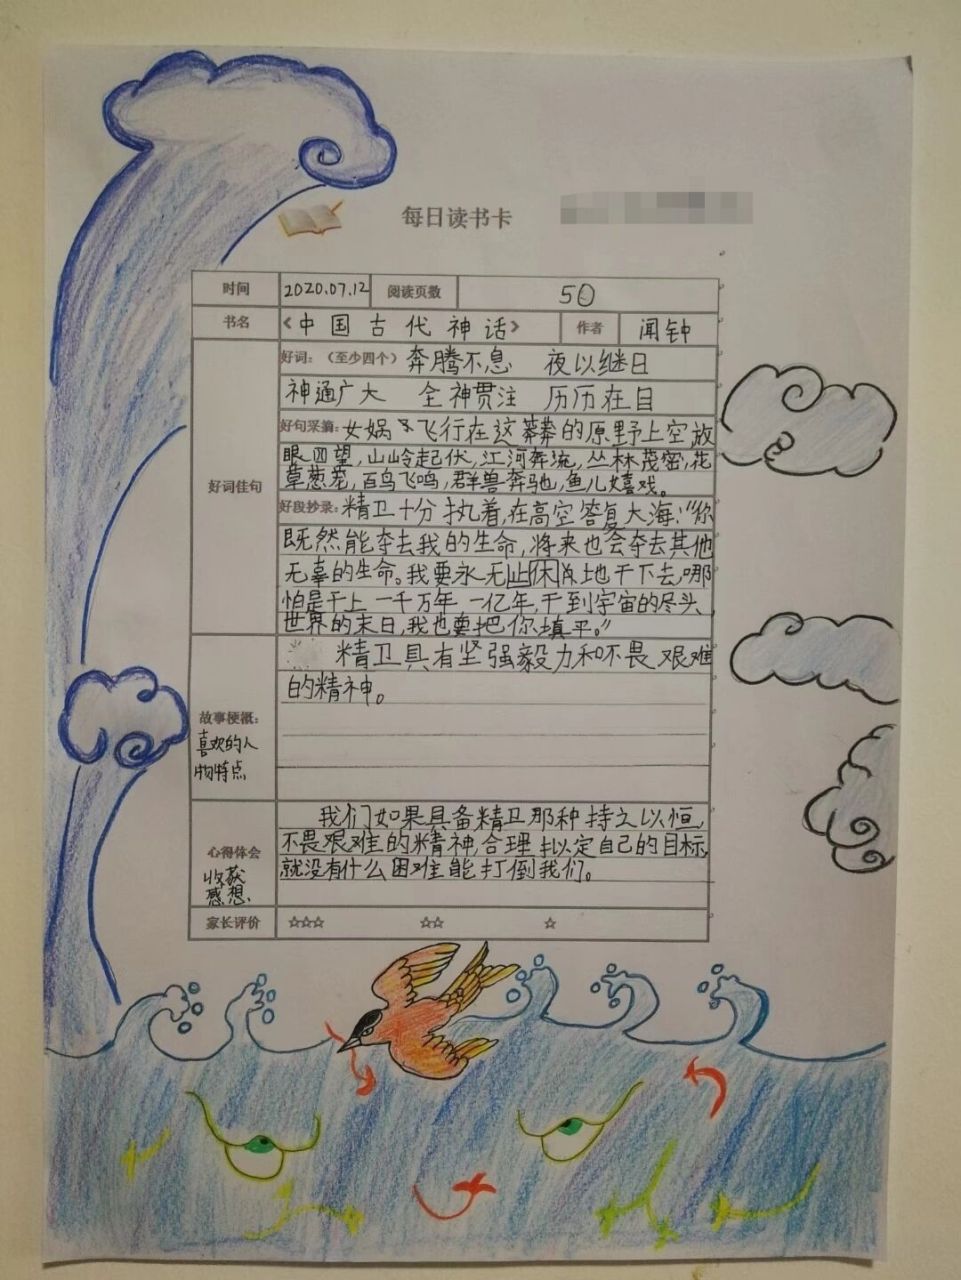 每日读书卡
时间 2020.07.12 阅读页数 50
书名 《中国古代神话》 作者 闻钟
好词佳句
好词：（至少四个）奔腾不息 夜以继日
神通广大 全神贯注 历历在目
好句采摘：女娲飞行在这莽莽的原野上空放
眼四望，山岭起伏，江河奔流，丛林茂密，花
草葱茏，百鸟飞鸣，群兽奔驰，鱼儿嬉戏。
好段抄录：精卫十分执着，在高空答复大海：“你
既然能夺去我的生命，将来也会夺去其他
无辜的生命。我要永无止休地干下去，哪
怕是干上一千万年，一亿年，干到宇宙的尽头
世界的末日，我也要把你填平。”
故事梗概：
喜欢的人
物特点
精卫具有坚强毅力和不畏艰难
的精神。
心得体会
收获
感想
我们如果具备精卫那种持之以恒，
不畏艰难的精神，合理拟定自己的目标，
就没有什么困难能打倒我们。
家长评价 ☆☆☆ ☆☆ ☆